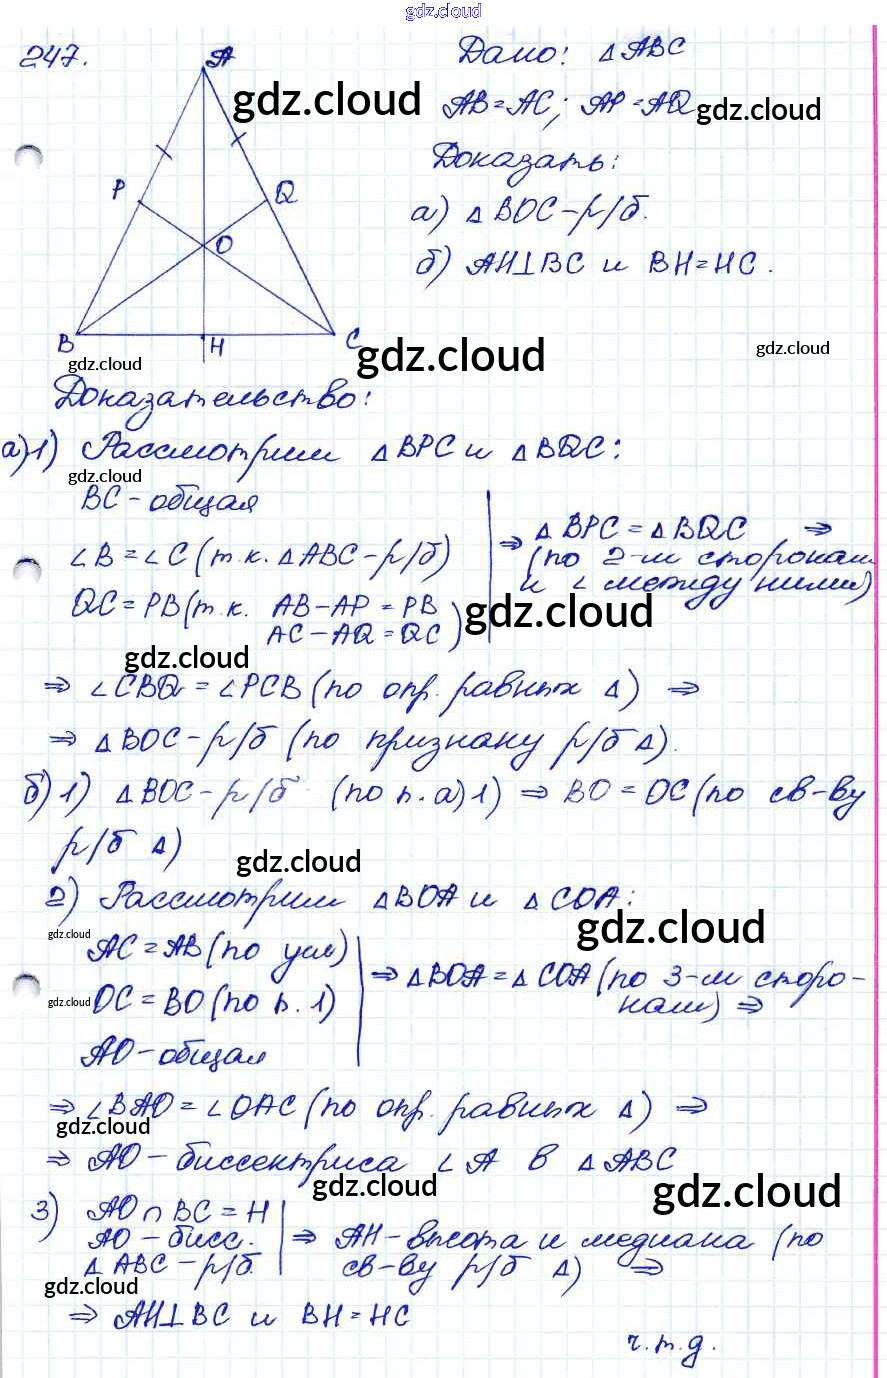 gdz.cloud
247.
A
gdz.cloud
P
Q
O
B
H
C
Дано: △ABC
AB=AC; AP=AQ
gdz.cloud
Доказать:
а) △BOC-р/б.
б) AH⊥BC и BH=HC.
gdz.cloud
gdz.cloud
gdz.cloud
Доказательство:
а)1) Рассмотрим △BPC и △BQC:
gdz.cloud
BC-общая
∠B=∠C (т.к. △ABC-р/б)
QC=PB (т.к. AB-AP=PB
AC-AQ=QC)
⇒ △BPC=△BQC ⇒
(по 2-м сторонам
и ∠ между ними)
gdz.cloud
gdz.cloud
⇒ ∠CBQ=∠PCB (по опр. равных △) ⇒
⇒ △BOC-р/б (по признаку р/б △).
б) 1) △BOC-р/б (по п. а)1) ⇒ BO=OC (по св-ву
р/б △)
gdz.cloud
2) Рассмотрим △BOA и △COA:
gdz.cloud
gdz.cloud
AC=AB (по усл)
gdz.cloud
OC=BO (по п. 1)
AO-общая
⇒ △BOA=△COA (по 3-м сторо-
нам) ⇒
⇒ ∠BAO=∠OAC (по опр. равных △) ⇒
gdz.cloud
⇒ AO-биссектриса ∠A в △ABC
gdz.cloud
gdz.cloud
3) AO∩BC=H
AO-бисс.
△ABC-р/б.
⇒ AH-высота и медиана (по
св-ву р/б △) ⇒
gdz.cloud
⇒ AH⊥BC и BH=HC
ч.т.д.